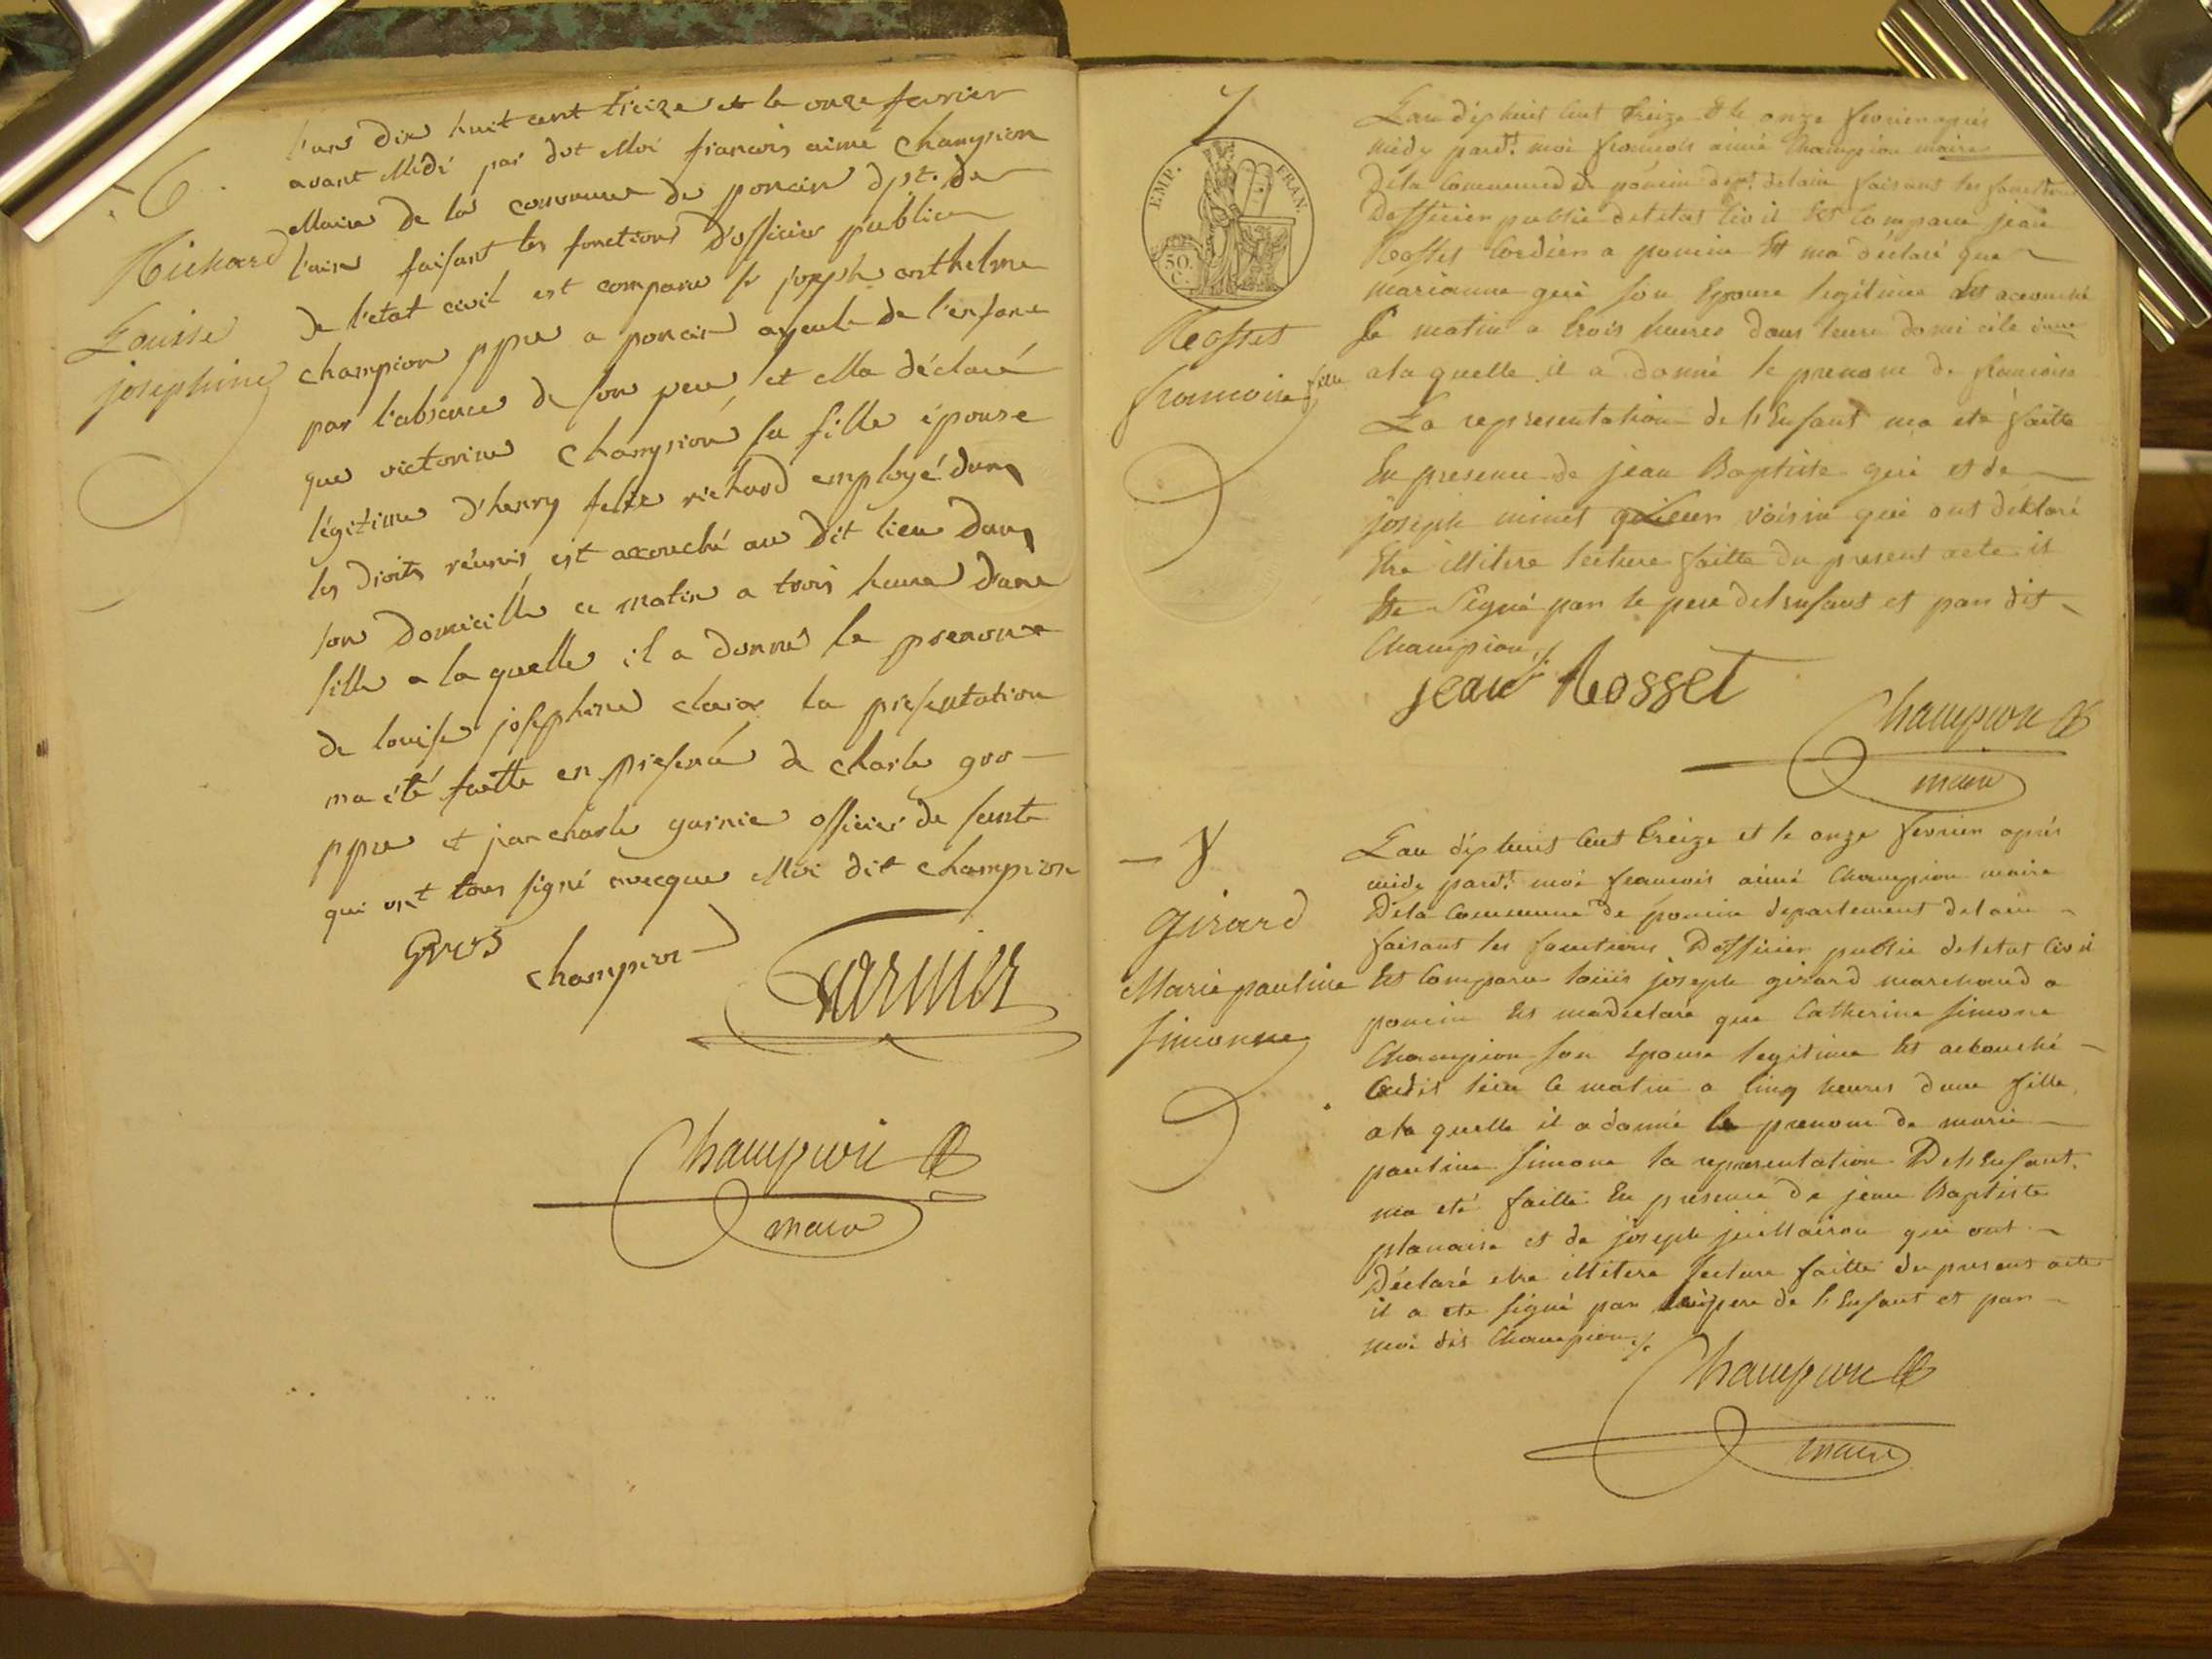 6
Richard
Louise
josephine
l'an dix huit cent treize et le onze fevrier
avant Midi par dvt Moi francois aimé Champion
Maire de la commune de poncin dpt. de
l'ain faisant les fonctions D'officier public
de l'etat civil est comparu sr joseph anthelme
champion ppre a poncin ayeule de l'enfant
par l'absence de son pere, et Ma déclaré
que victorine Champion sa fille épouse
légitime d'henry felix richard employé dans
les droits réunis est accouché au Dit lieu dans
son domicille ce matin a trois heure d'une
fille a la quelle il a donné le prenom
de louise josephine la présentation
ma été faitte en présence de charle gros
ppre et jean charle garnié officier de santé
qui ont tous signé avecque Moi dit champion
Gros
champion
Garnier
Champion
maire
7
EMP. FRAN.
50 C.
Rosset
francoise fille
L'an dix huit cent treize et le onze fevrier après
midy pardt. moi francois aimé Champion maire
De la Commune de poncin dept. de lain faisant les fonctions
D'officier public de letat Civil Est Comparu jean
Rosset Cordier a poncin Et ma déclaré que
marianne gui son Epouse legitime Est accouché
Ce matin a trois heures dans leure domicile d'une
a la quelle il a donné le prenom de francoise
La representation de l'Enfant ma eté faitte
En presence de jean Baptiste gui et de
joseph minet voisin qui ont déclaré
Etre illitere lecture faitte du present acte il
Ete Signé par le pere de lenfant et par dit
Champion ./.
jean Rosset
Champion
maire
8
girard
Marie pauline
Simonne
L'an dix huit Cent treize et le onze fevrier après
midy pardt. moi francois aimé Champion maire
De la Commune de poncin departement de lain
faisant les fonctions D'officier public de letat Civil
Est Comparu louis joseph girard marchand a
poncin Et ma declaré que Catherine Simone
Champion son Epouse legitime Est accouché
Audit lieu Ce matin a Cinq heures d'une fille
a la quelle il a donné le prenom de marie
pauline Simone la representation De l'Enfant
ma eté faitte En presence de jean Baptiste
et de joseph qui ont
Déclaré etre illitere lecture faitte du present acte
il a ete signé par le pere de l'Enfant et par
moi dit Champion ./.
Champion
maire